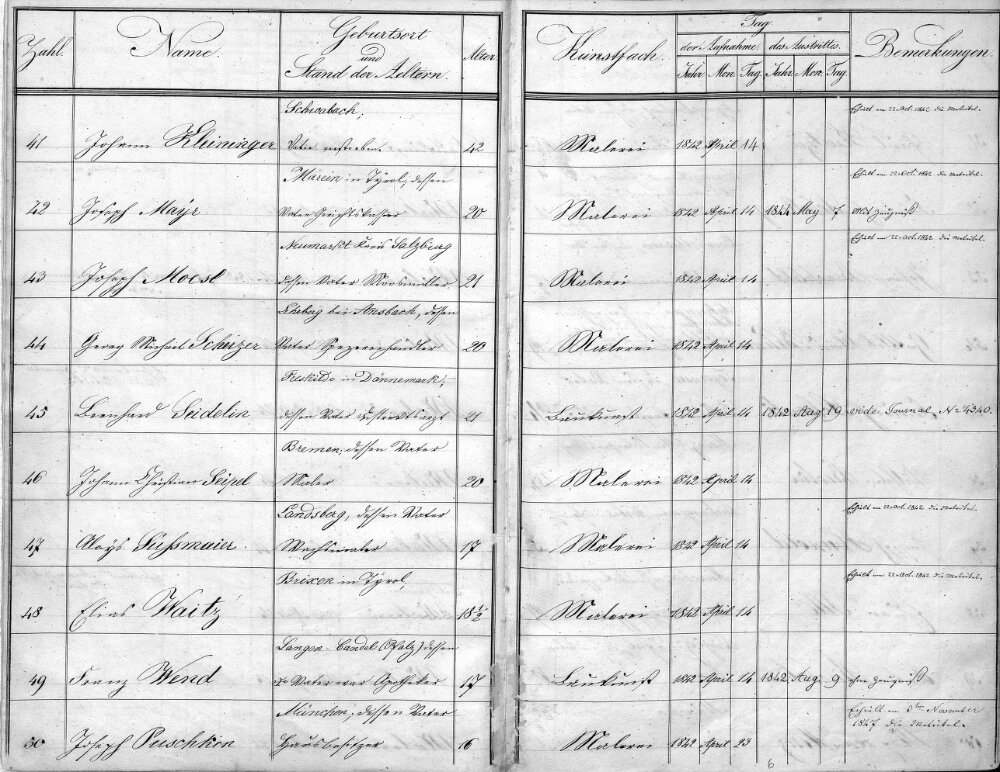 Zahl. Name. Geburtsort und Stand der Aeltern. Alter Kunstfach. Tag der Aufnahme Jahr Mon. Tag des Austrittes. Jahr Mon. Tag. Bemerkungen.
Schwabach, Erhielt am 22 Oct. 1842 die Matrikel.
41 Johann Vater verstorben 42 Malerei 1842 April 14
in Tÿrol, dessen Erhielt am 22 Oct. 1842 die Matrikel.
42 Joseph Maÿr Vater 20 Malerei 1842 April 14 1844 May 7 Mit Zeugniß
Neumarkt Kreis Salzburg Erhielt am 22 Oct. 1842 die Matrikel.
43 Joseph Moesl dessen Vater 21 Malerei 1842 April 14
bei Ansbach, dessen
44 Georg Michael Vater Spezereihändler 20 Malerei 1842 April 14
in Dännemark,
45 Bernhard Seidelin dessen Vater 21 Baukunst 1842 April 14 1842 Aug 19 vide Journal No 4340.
Bremen, dessen Vater
46 Johann Christian Seipel Maler 20 Malerei 1842 April 14
Landsberg, dessen Vater Erhielt am 22 Oct. 1842 die Matrikel.
47 Aloÿs Süßmaier. 17 Malerei 1842 April 14
Brixen in Tÿrol, Erhielt am 22 Oct. 1842 die Matrikel.
48 Elias Waitz 18 1/2 Malerei 1842 April 14
Langen-Candel (Pfalz) dessen
49 Franz Wend Vater war Apotheker 17 Baukunst 1842 April 14 1842 Aug. 9 ohne Zeugniß
München, dessen Vater Erhielt am 3ten November 1847 die Matrikel.
50 Joseph Puschkin Hausbesitzer 16 Malerei 1842 April 23
6